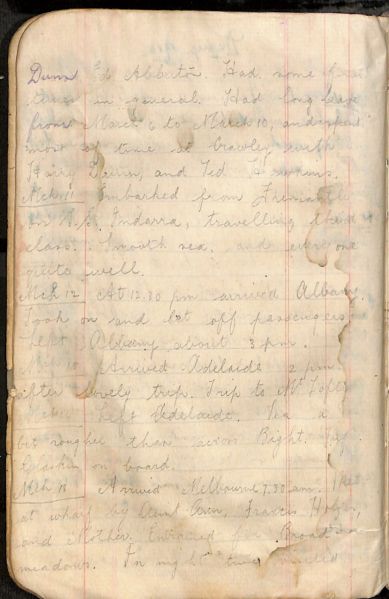 Dunn Ed Abberton. Had some
times in general. Had long leave
from March 6 to March 10, and spent
most of time at Crawley with
Harry Dunn, and Ted Hawkins.
Mch 11 Embarked from Fremantle
on S.S. Indarra, travelling third
class. Smooth sea. and every one
quite well.
Mch 12 At 12.30 pm arrived Albany.
Took on and let off passengers
Left Albany about 3 pm.
Arrived Adelaide 2 pm
after lovely trip. Trip to Mt Lofty
Left Adelaide. Sea a
bit rougher than across Bight.
on board.
Mch 18 Arrived Melbourne 7.30 am. Met
at wharf by Aunt Frances
and Mother. Entrained for Broad
meadows. In night time